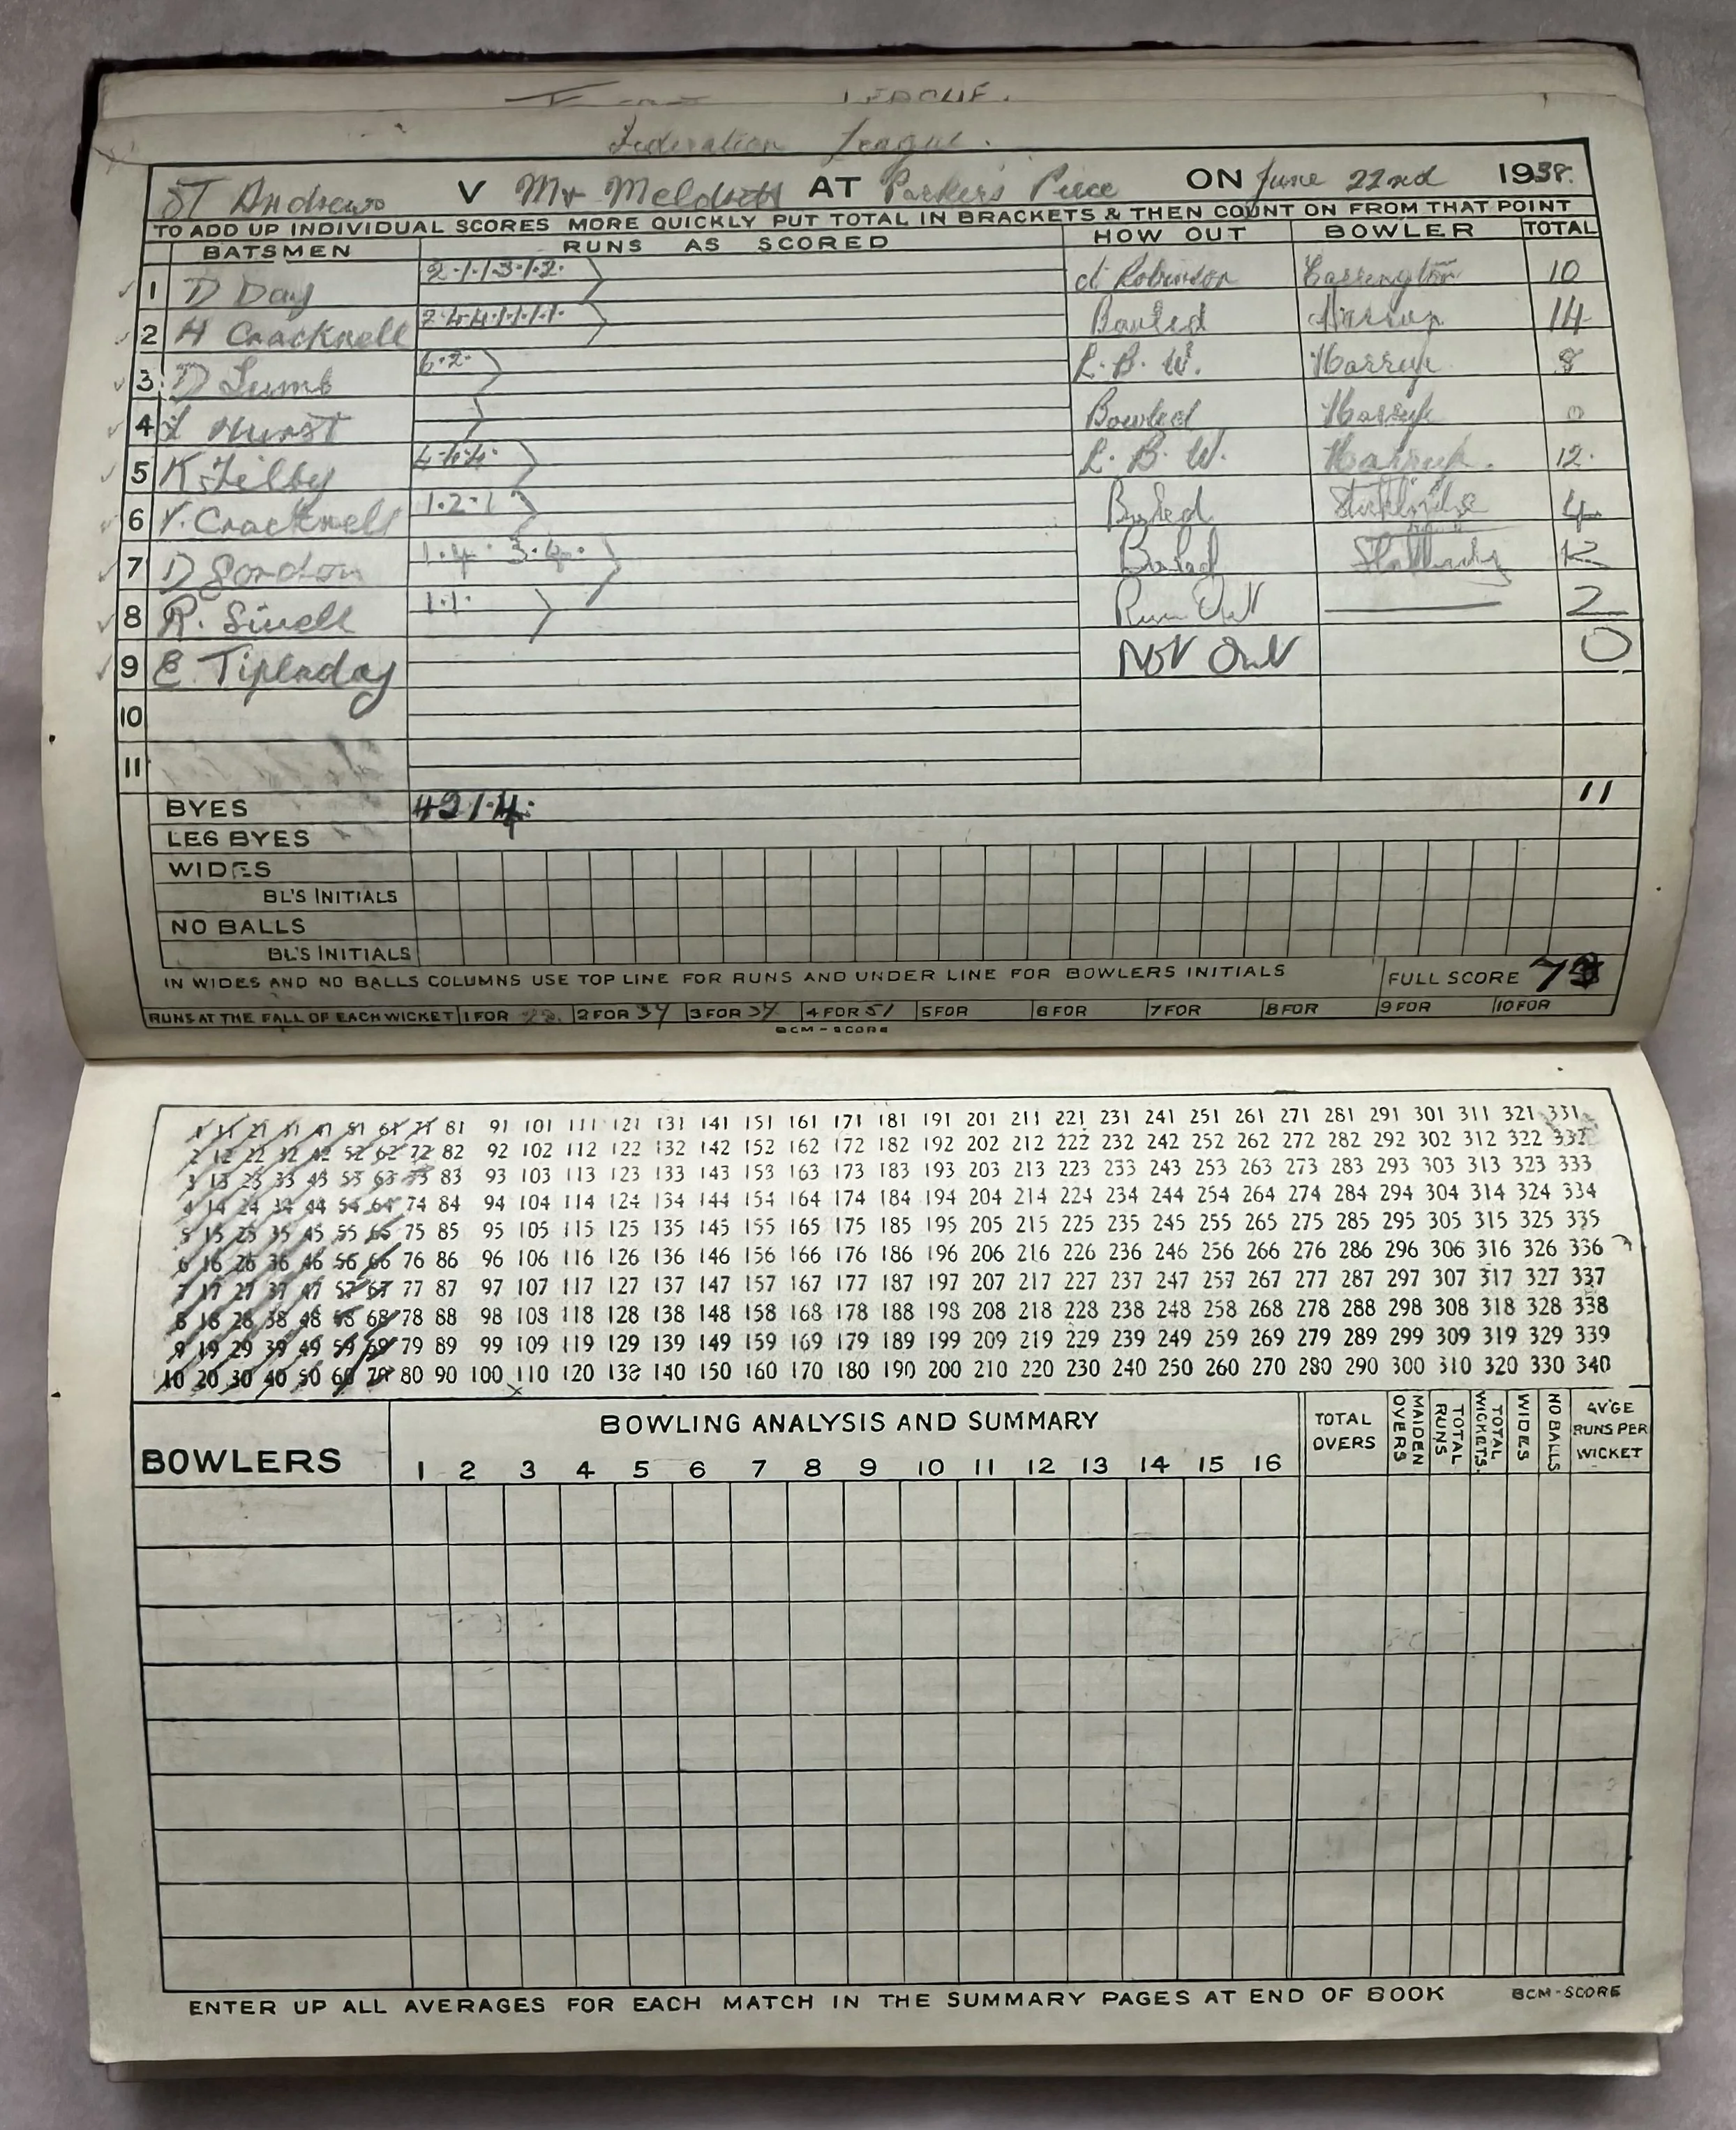 LEAGUE.
Federation League.
ST Andrews V Mr Meldrett AT Parkers Piece ON June 22nd 1938.
TO ADD UP INDIVIDUAL SCORES MORE QUICKLY PUT TOTAL IN BRACKETS & THEN COUNT ON FROM THAT POINT
BATSMEN RUNS AS SCORED HOW OUT BOWLER TOTAL
1 D Day 2·1·1·3·1·2· ct Robinson Carrington 10
2 H Cracknell 2·4·4·1·1·1·1· Bowled 14
3 D Lumb 6·2· L. B. W. Harrup 8
4 Hurst Bowled Harrup 0
5 K. Filby 4·4·4· L. B. W. Harrup. 12.
6 V. Cracknell 1·2·1 Bowled 4
7 D Gordon 1·4· 3·4· Bowled 12
8 R. Sinell 1·1· Run Out 2
9 E Tipladay Not Out 0
10
11
BYES 4·2·1·4· 11
LEG BYES
WIDES
BL'S INITIALS
NO BALLS
BL'S INITIALS
IN WIDES AND NO BALLS COLUMNS USE TOP LINE FOR RUNS AND UNDER LINE FOR BOWLERS INITIALS FULL SCORE 73
RUNS AT THE FALL OF EACH WICKET 1 FOR 2 FOR 34 3 FOR 34 4 FOR 51 5 FOR 6 FOR 7 FOR 8 FOR 9 FOR 10 FOR
BCM-SCORE
1 11 21 31 41 51 61 71 81 91 101 111 121 131 141 151 161 171 181 191 201 211 221 231 241 251 261 271 281 291 301 311 321 331
2 12 22 32 42 52 62 72 82 92 102 112 122 132 142 152 162 172 182 192 202 212 222 232 242 252 262 272 282 292 302 312 322 332
3 13 23 33 43 53 63 73 83 93 103 113 123 133 143 153 163 173 183 193 203 213 223 233 243 253 263 273 283 293 303 313 323 333
4 14 24 34 44 54 64 74 84 94 104 114 124 134 144 154 164 174 184 194 204 214 224 234 244 254 264 274 284 294 304 314 324 334
5 15 25 35 45 55 65 75 85 95 105 115 125 135 145 155 165 175 185 195 205 215 225 235 245 255 265 275 285 295 305 315 325 335
6 16 26 36 46 56 66 76 86 96 106 116 126 136 146 156 166 176 186 196 206 216 226 236 246 256 266 276 286 296 306 316 326 336
7 17 27 37 47 57 67 77 87 97 107 117 127 137 147 157 167 177 187 197 207 217 227 237 247 257 267 277 287 297 307 317 327 337
8 18 28 38 48 58 68 78 88 98 108 118 128 138 148 158 168 178 188 198 208 218 228 238 248 258 268 278 288 298 308 318 328 338
9 19 29 39 49 59 69 79 89 99 109 119 129 139 149 159 169 179 189 199 209 219 229 239 249 259 269 279 289 299 309 319 329 339
10 20 30 40 50 60 70 80 90 100 110 120 130 140 150 160 170 180 190 200 210 220 230 240 250 260 270 280 290 300 310 320 330 340
BOWLERS BOWLING ANALYSIS AND SUMMARY TOTAL OVERS MAIDEN OVERS TOTAL RUNS TOTAL WICKETS. WIDES NO BALLS AV'GE RUNS PER WICKET
1 2 3 4 5 6 7 8 9 10 11 12 13 14 15 16
ENTER UP ALL AVERAGES FOR EACH MATCH IN THE SUMMARY PAGES AT END OF BOOK BCM-SCORE